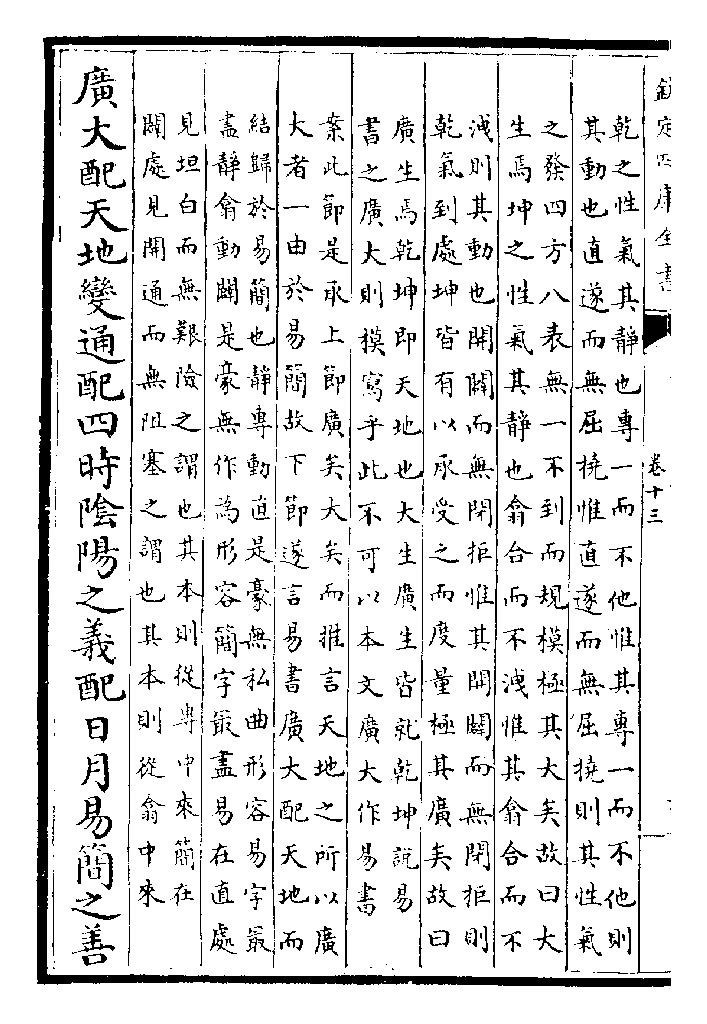 欽定四庫全書
卷十三
乾之性氣其靜也專一而不他惟其專一而不他則
其動也直遂而無屈撓惟直遂而無屈撓則其性氣
之發四方八表無一不到而規模極其大矣故曰大
生焉坤之性氣其靜也翕合而不洩惟其翕合而不
洩則其動也開闢而無閉拒惟其開闢而無閉拒則
乾氣到處坤皆有以承受之而度量極其廣矣故曰
廣生焉乾坤即天地也大生廣生皆就乾坤說易
書之廣大則模寫乎此不可以本文廣大作易書
案此節是承上節廣矣大矣而推言天地之所以廣
大者一由於易簡故下節遂言易書廣大配天地而
結歸於易簡也靜專動直是豪無私曲形容易字最
盡靜翕動闢是豪無作為形容簡字最盡易在直處
見坦白而無艱險之謂也其本則從專中來簡在
闢處見開通而無阻塞之謂也其本則從翕中來
廣大配天地變通配四時陰陽之義配日月易簡之善